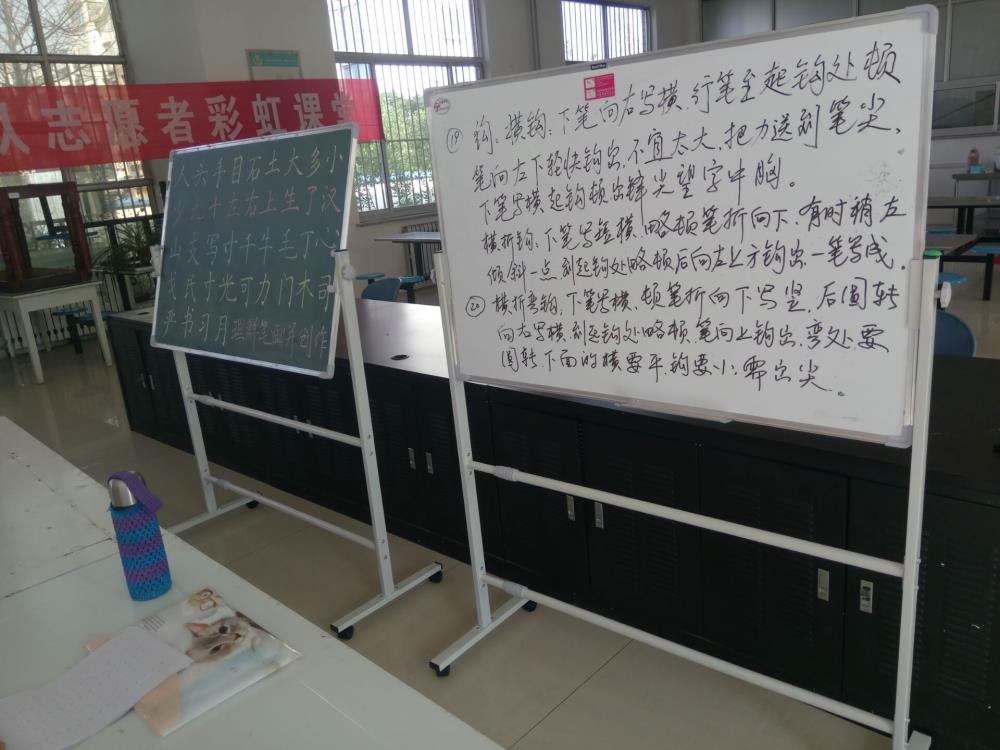 队志愿者彩虹课堂
人头手目石土大多小
九十左右上生了汉
山支写寸千牛毛丁心
戈氏寸光可力门木司
严书习月理解笔画并创作
⑲ 钩:横钩:下笔向右写横、行笔至起钩处顿
笔向左下轻快钩出、不宜太大、把力送到笔尖、
下笔写横起钩顿出锋尖望字中胸。
横折钩:下笔写短横、略顿笔折向下、有时稍左
倾斜一点到起钩处略顿后向左上方钩出、一笔写成。
⑳ 横折弯钩、下笔写横、顿笔折向下写竖、后圆转
向右写横、到起钩处略顿、笔向上钩出、弯处要
圆转、下面的横要平、钩要小、要出尖。